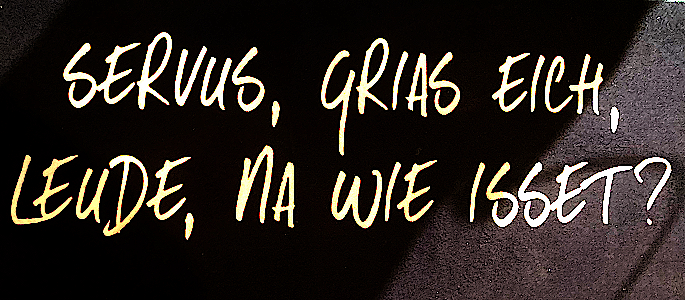 SERVUS, GRIAS EICH,
LEUDE, NA WIE ISSET?